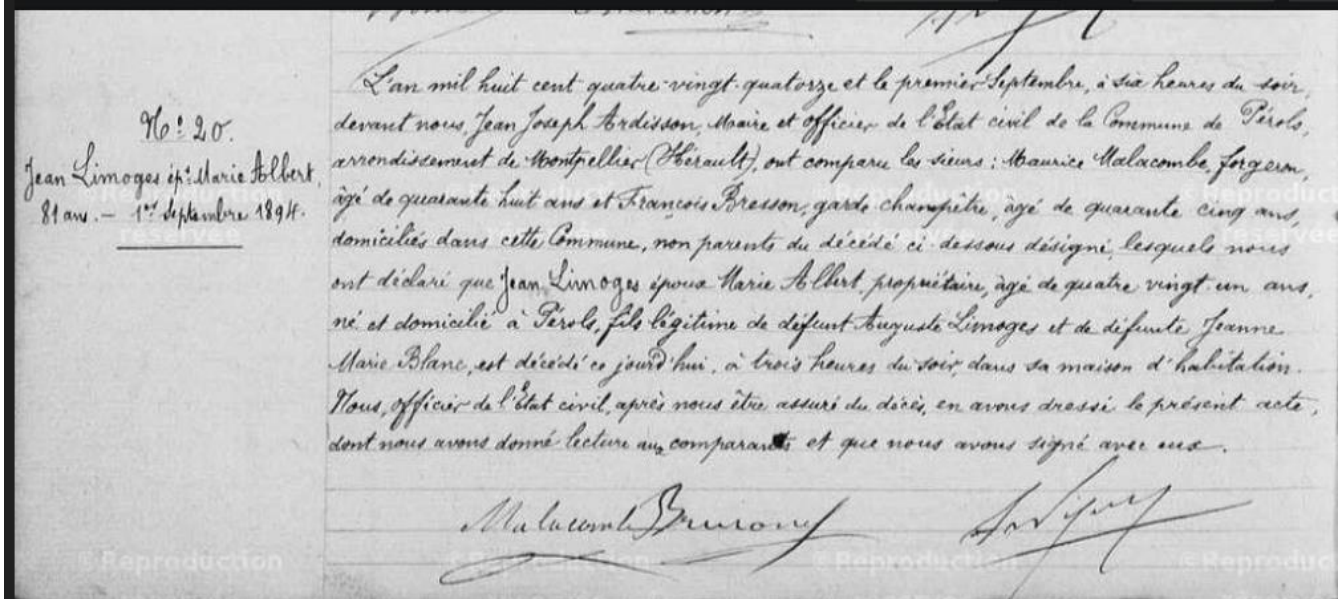 N.º 20.
Jean Limoges ép.x Marie Albert,
81 ans. — 1er Septembre 1894.
L'an mil huit cent quatre-vingt-quatorze et le premier Septembre, à six heures du soir,
devant nous, Jean Joseph Ardisson, Maire et officier de l'Etat civil de la Commune de Pérols,
arrondissement de Montpellier (Hérault), ont comparu les sieurs : Maurice Malacombe, forgeron,
âgé de quarante huit ans et François Bresson, garde champêtre, âgé de quarante cinq ans,
domiciliés dans cette Commune, non parents du décédé ci-dessous désigné, lesquels nous
ont déclaré que Jean Limoges époux Marie Albert, propriétaire, âgé de quatre vingt-un ans,
né et domicilié à Pérols, fils légitime de défunt Auguste Limoges et de défunte Jeanne
Marie Blanc, est décédé ce jourd'hui, à trois heures du soir, dans sa maison d'habitation.
Nous, officier de l'Etat civil, après nous être assuré du décès, en avons dressé le présent acte,
dont nous avons donné lecture aux comparants et que nous avons signé avec eux.
Malacombe
©Reproduction réservée
©Reproduction réservée
©Reproduction réservée
©Reproduction réservée
©Reproduction
©Reproduction
©Reproduction
©Reproduction